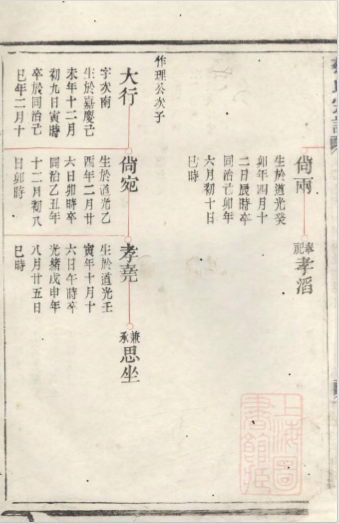 尙兩
生於道光癸
卯年四月十
二月辰時卒
同治己卯年
六月初十日
巳時
奉祀
孝滔
作理公次子
大行
字次南
生於嘉慶己
未年十二月
初九日寅時
卒於同治己
巳年二月十
日卯時
尙宛
生於道光乙
酉年二月廿
六日卯時卒
同治乙丑年
十二月初八
巳時
孝堯
生於道光壬
寅年十月十
六日午時卒
光緒戊申年
八月廿五日
巳時
兼承
思坐
上海圖書館藏